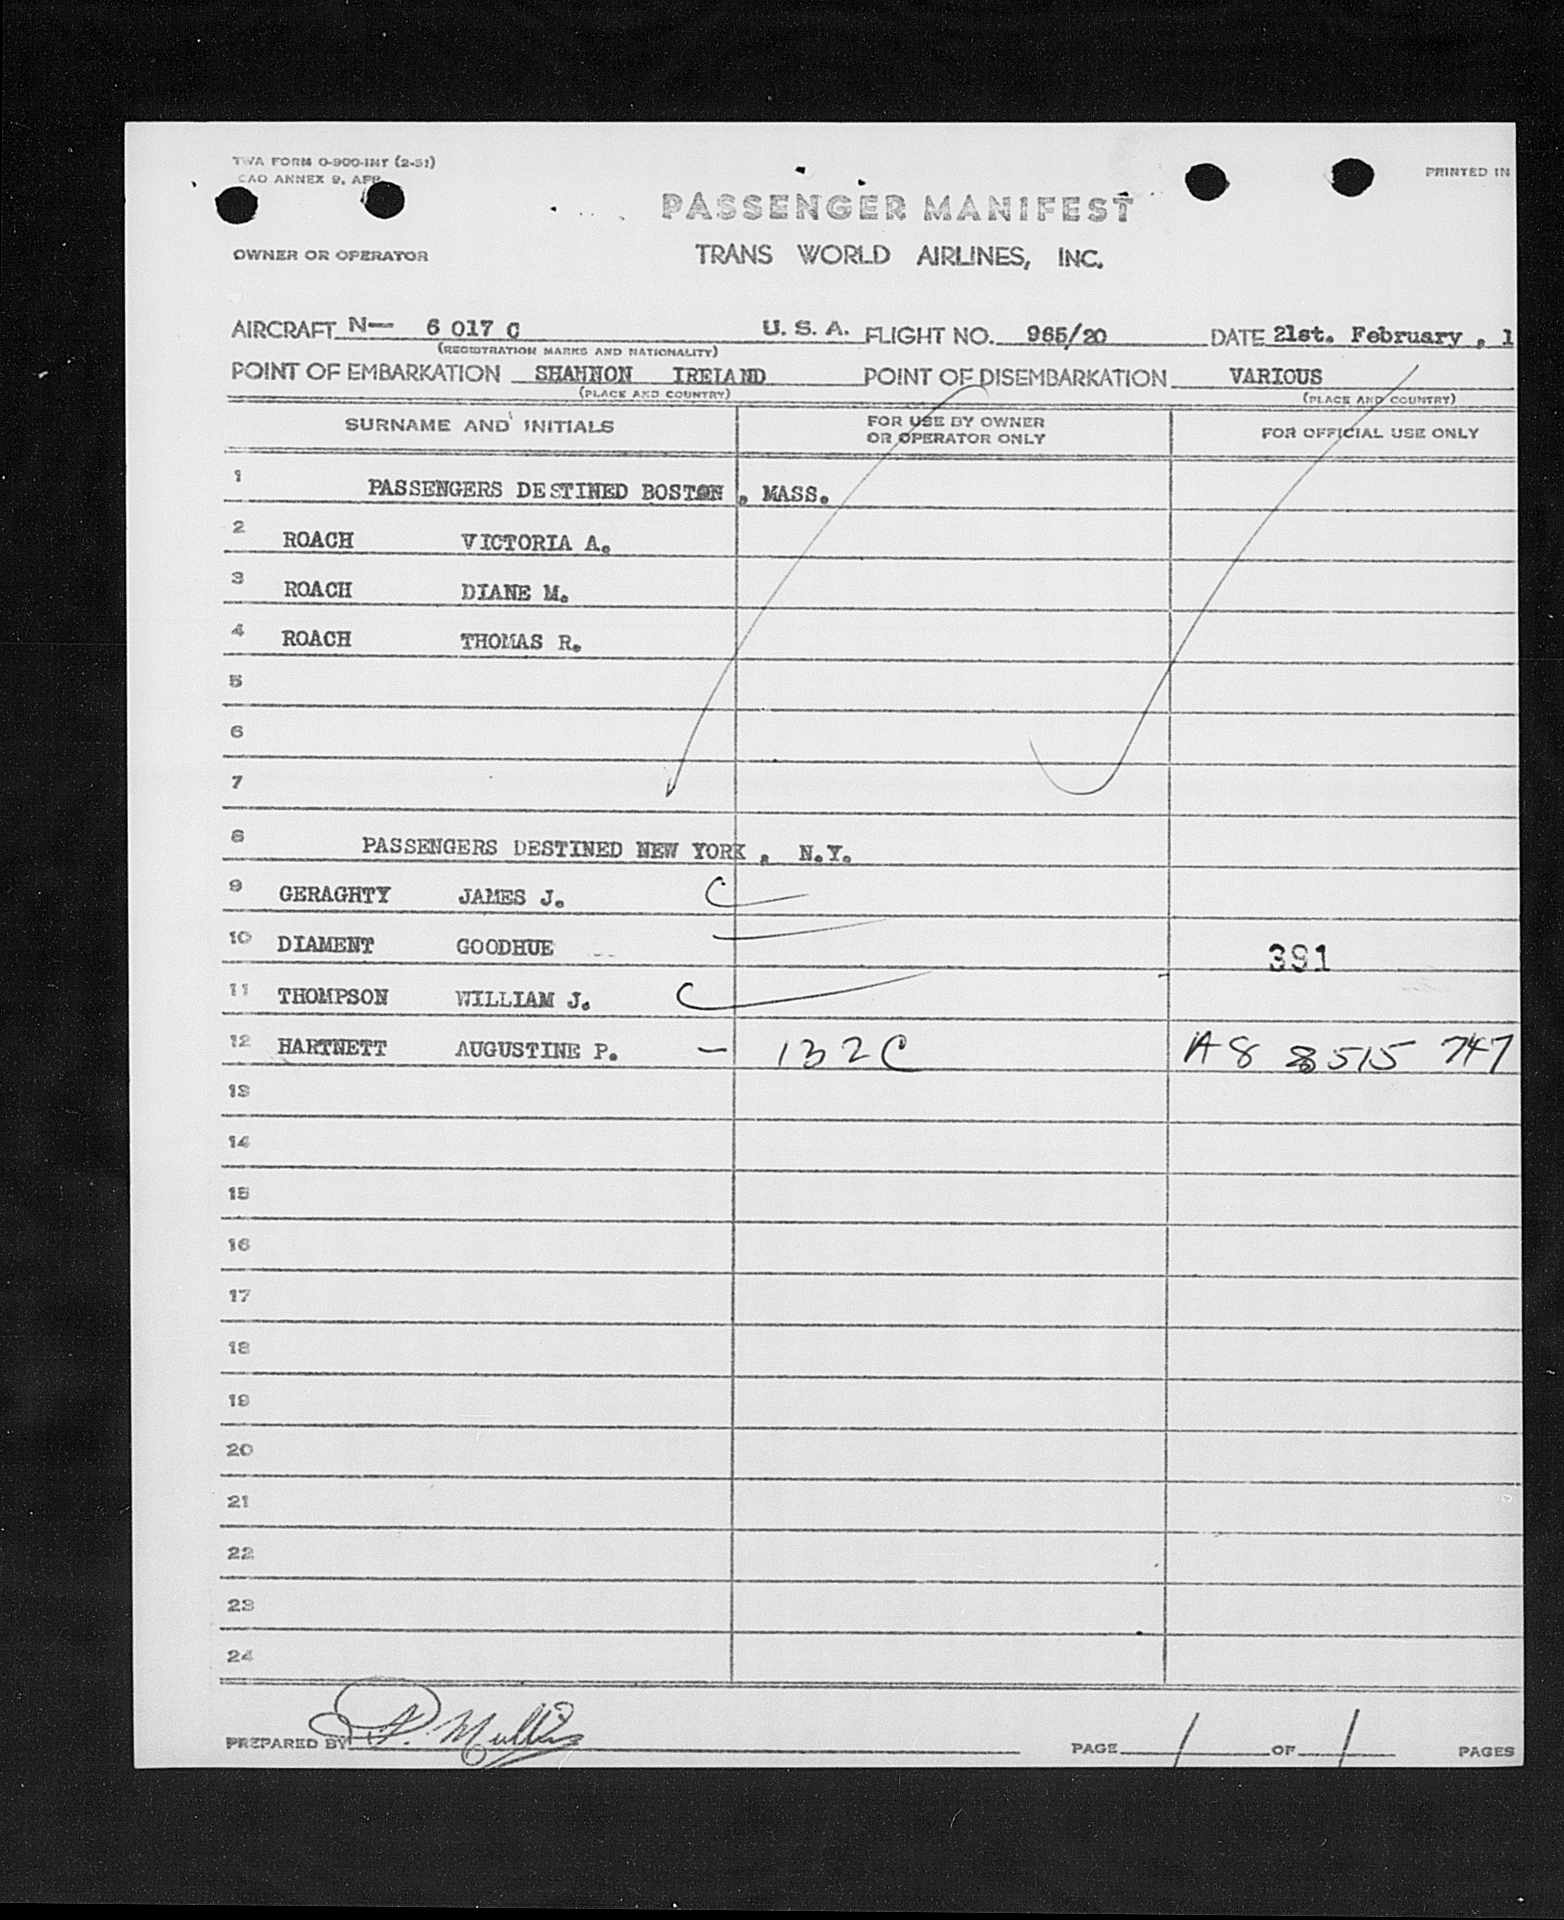 TWA FORM O-900-INT (2-51)
CAO ANNEX 9, APP
PRINTED IN
PASSENGER MANIFEST
OWNER OR OPERATOR
TRANS WORLD AIRLINES, INC.
AIRCRAFT N— 6 017 C U. S. A. FLIGHT NO. 965/20 DATE 21st. February , 1
(REGISTRATION MARKS AND NATIONALITY)
POINT OF EMBARKATION SHANNON IRELAND POINT OF DISEMBARKATION VARIOUS
(PLACE AND COUNTRY) (PLACE AND COUNTRY)
SURNAME AND INITIALS FOR USE BY OWNER OR OPERATOR ONLY FOR OFFICIAL USE ONLY
1 PASSENGERS DESTINED BOSTON , MASS.
2 ROACH VICTORIA A.
3 ROACH DIANE M.
4 ROACH THOMAS R.
5
6
7
8 PASSENGERS DESTINED NEW YORK , N.Y.
9 GERAGHTY JAMES J.
10 DIAMENT GOODHUE 391
11 THOMPSON WILLIAM J.
12 HARTNETT AUGUSTINE P. — 132C A8 8515 747
13
14
15
16
17
18
19
20
21
22
23
24
PREPARED BY PAGE 1 OF 1 PAGES